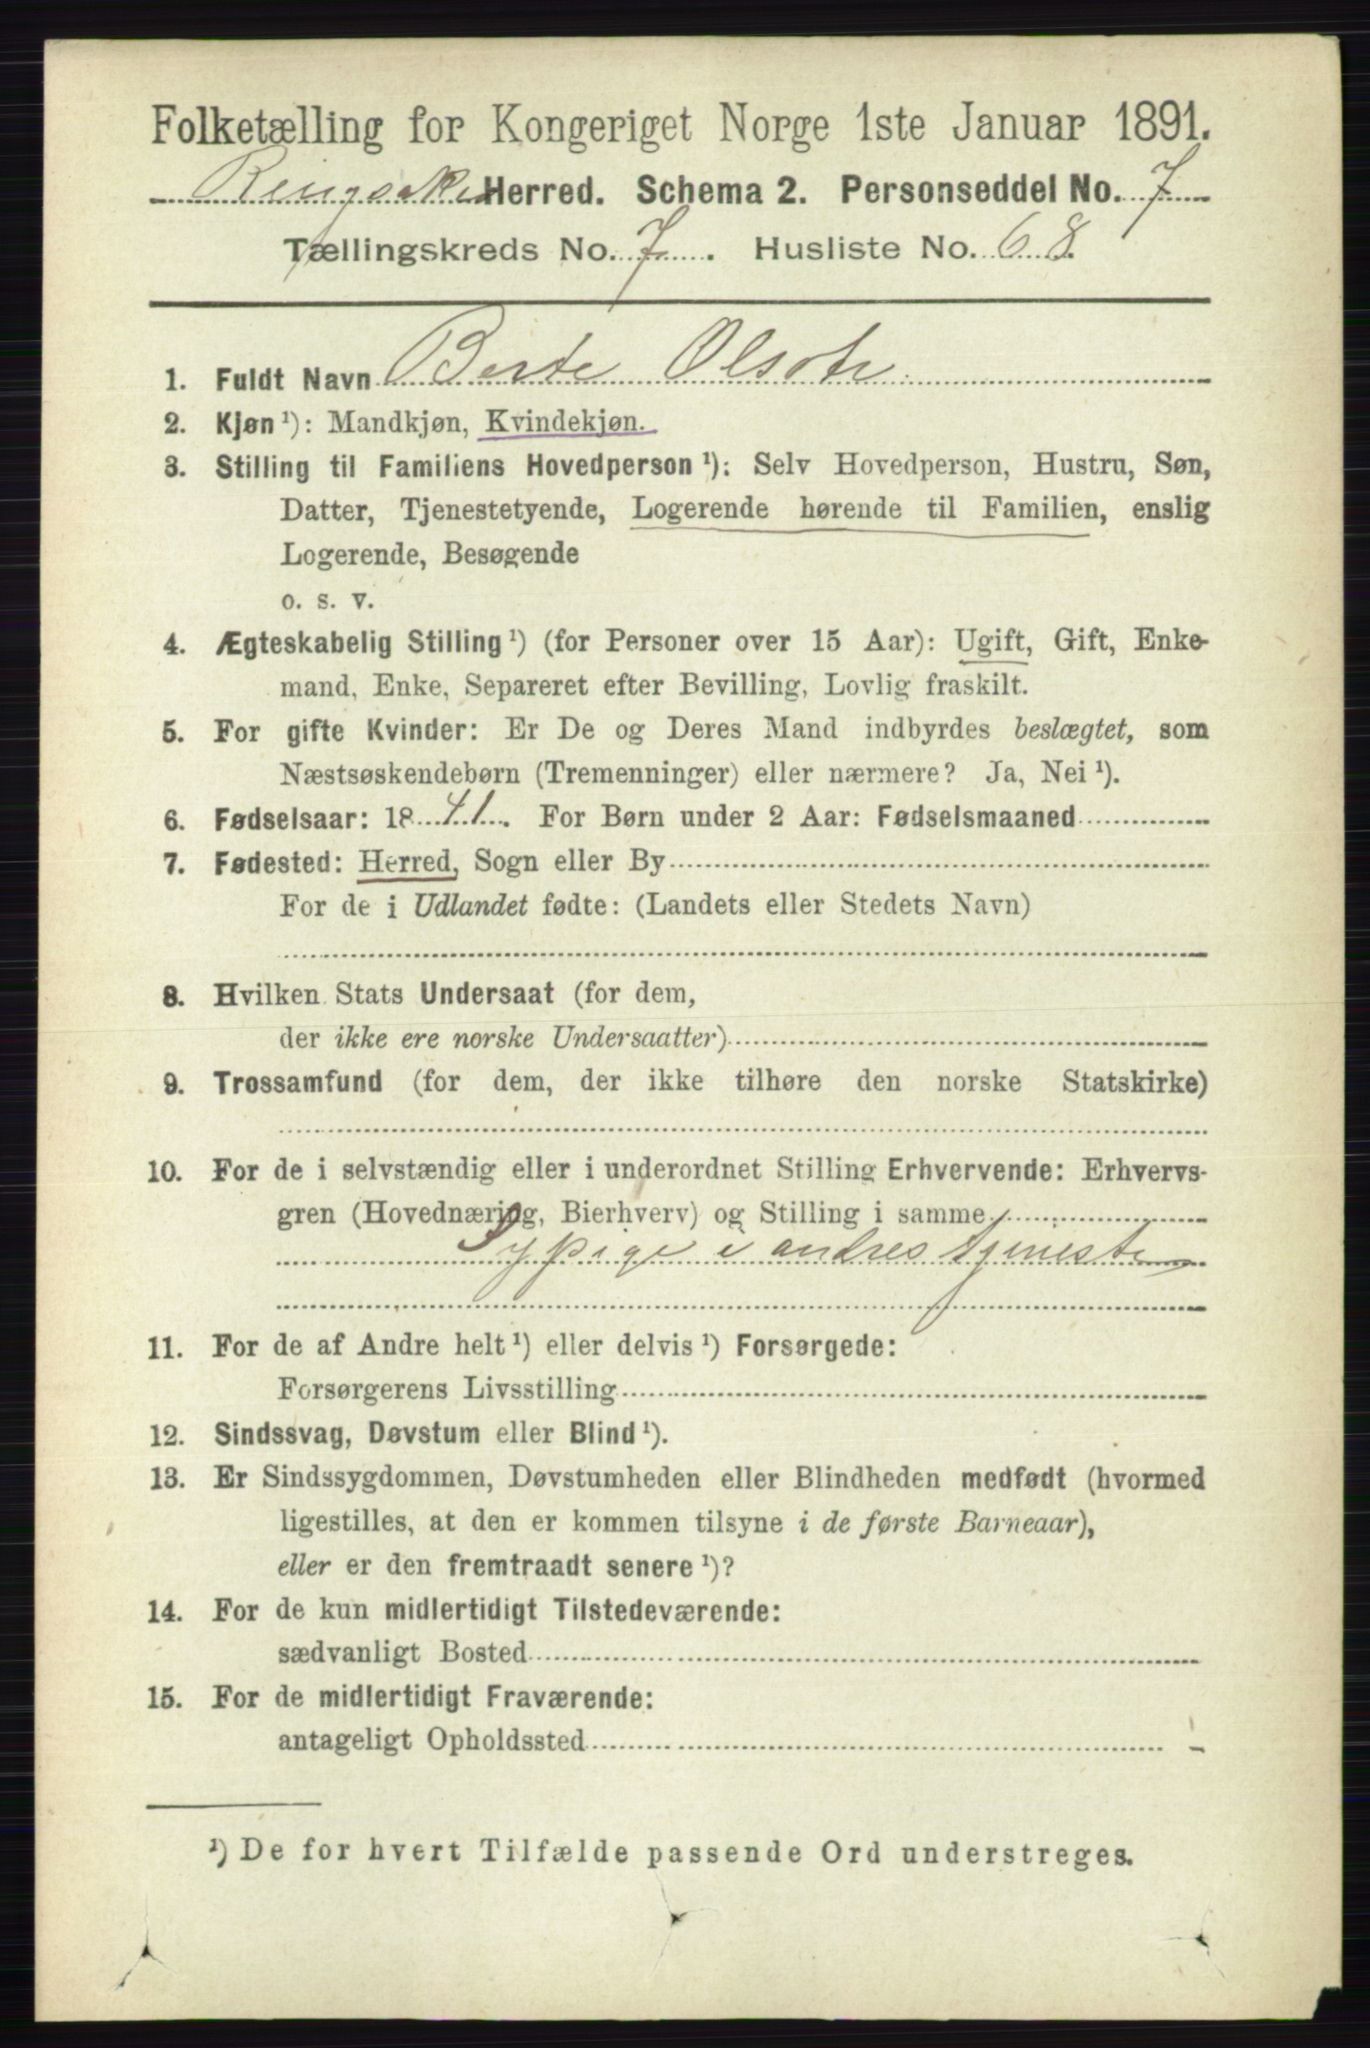 Folketælling for Kongeriget Norge 1ste Januar 1891.
Ringsaker Herred. Schema 2. Personseddel No. 7
Tællingskreds No. 7. Husliste No. 68.
1. Fuldt Navn Berte Olsdtr
2. Kjøn ¹): Mandkjøn, Kvindekjøn.
3. Stilling til Familiens Hovedperson ¹): Selv Hovedperson, Hustru, Søn,
Datter, Tjenestetyende, Logerende hørende til Familien, enslig
Logerende, Besøgende
o. s. v.
4. Ægteskabelig Stilling ¹) (for Personer over 15 Aar): Ugift, Gift, Enke-
mand, Enke, Separeret efter Bevilling, Lovlig fraskilt.
5. For gifte Kvinder: Er De og Deres Mand indbyrdes beslægtet, som
Næstsøskendebørn (Tremenninger) eller nærmere? Ja, Nei ¹).
6. Fødselsaar: 1841. For Børn under 2 Aar: Fødselsmaaned
7. Fødested: Herred, Sogn eller By
For de i Udlandet fødte: (Landets eller Stedets Navn)
8. Hvilken Stats Undersaat (for dem,
der ikke ere norske Undersaatter)
9. Trossamfund (for dem, der ikke tilhøre den norske Statskirke)
10. For de i selvstændig eller i underordnet Stilling Erhvervende: Erhvervs-
gren (Hovednæring, Bierhverv) og Stilling i samme
Sypige i andres tjeneste
11. For de af Andre helt ¹) eller delvis ¹) Forsørgede:
Forsørgerens Livsstilling
12. Sindssvag, Døvstum eller Blind ¹).
13. Er Sindssygdommen, Døvstumheden eller Blindheden medfødt (hvormed
ligestilles, at den er kommen tilsyne i de første Barneaar),
eller er den fremtraadt senere ¹)?
14. For de kun midlertidigt Tilstedeværende:
sædvanligt Bosted
15. For de midlertidigt Fraværende:
antageligt Opholdssted
¹) De for hvert Tilfælde passende Ord understreges.